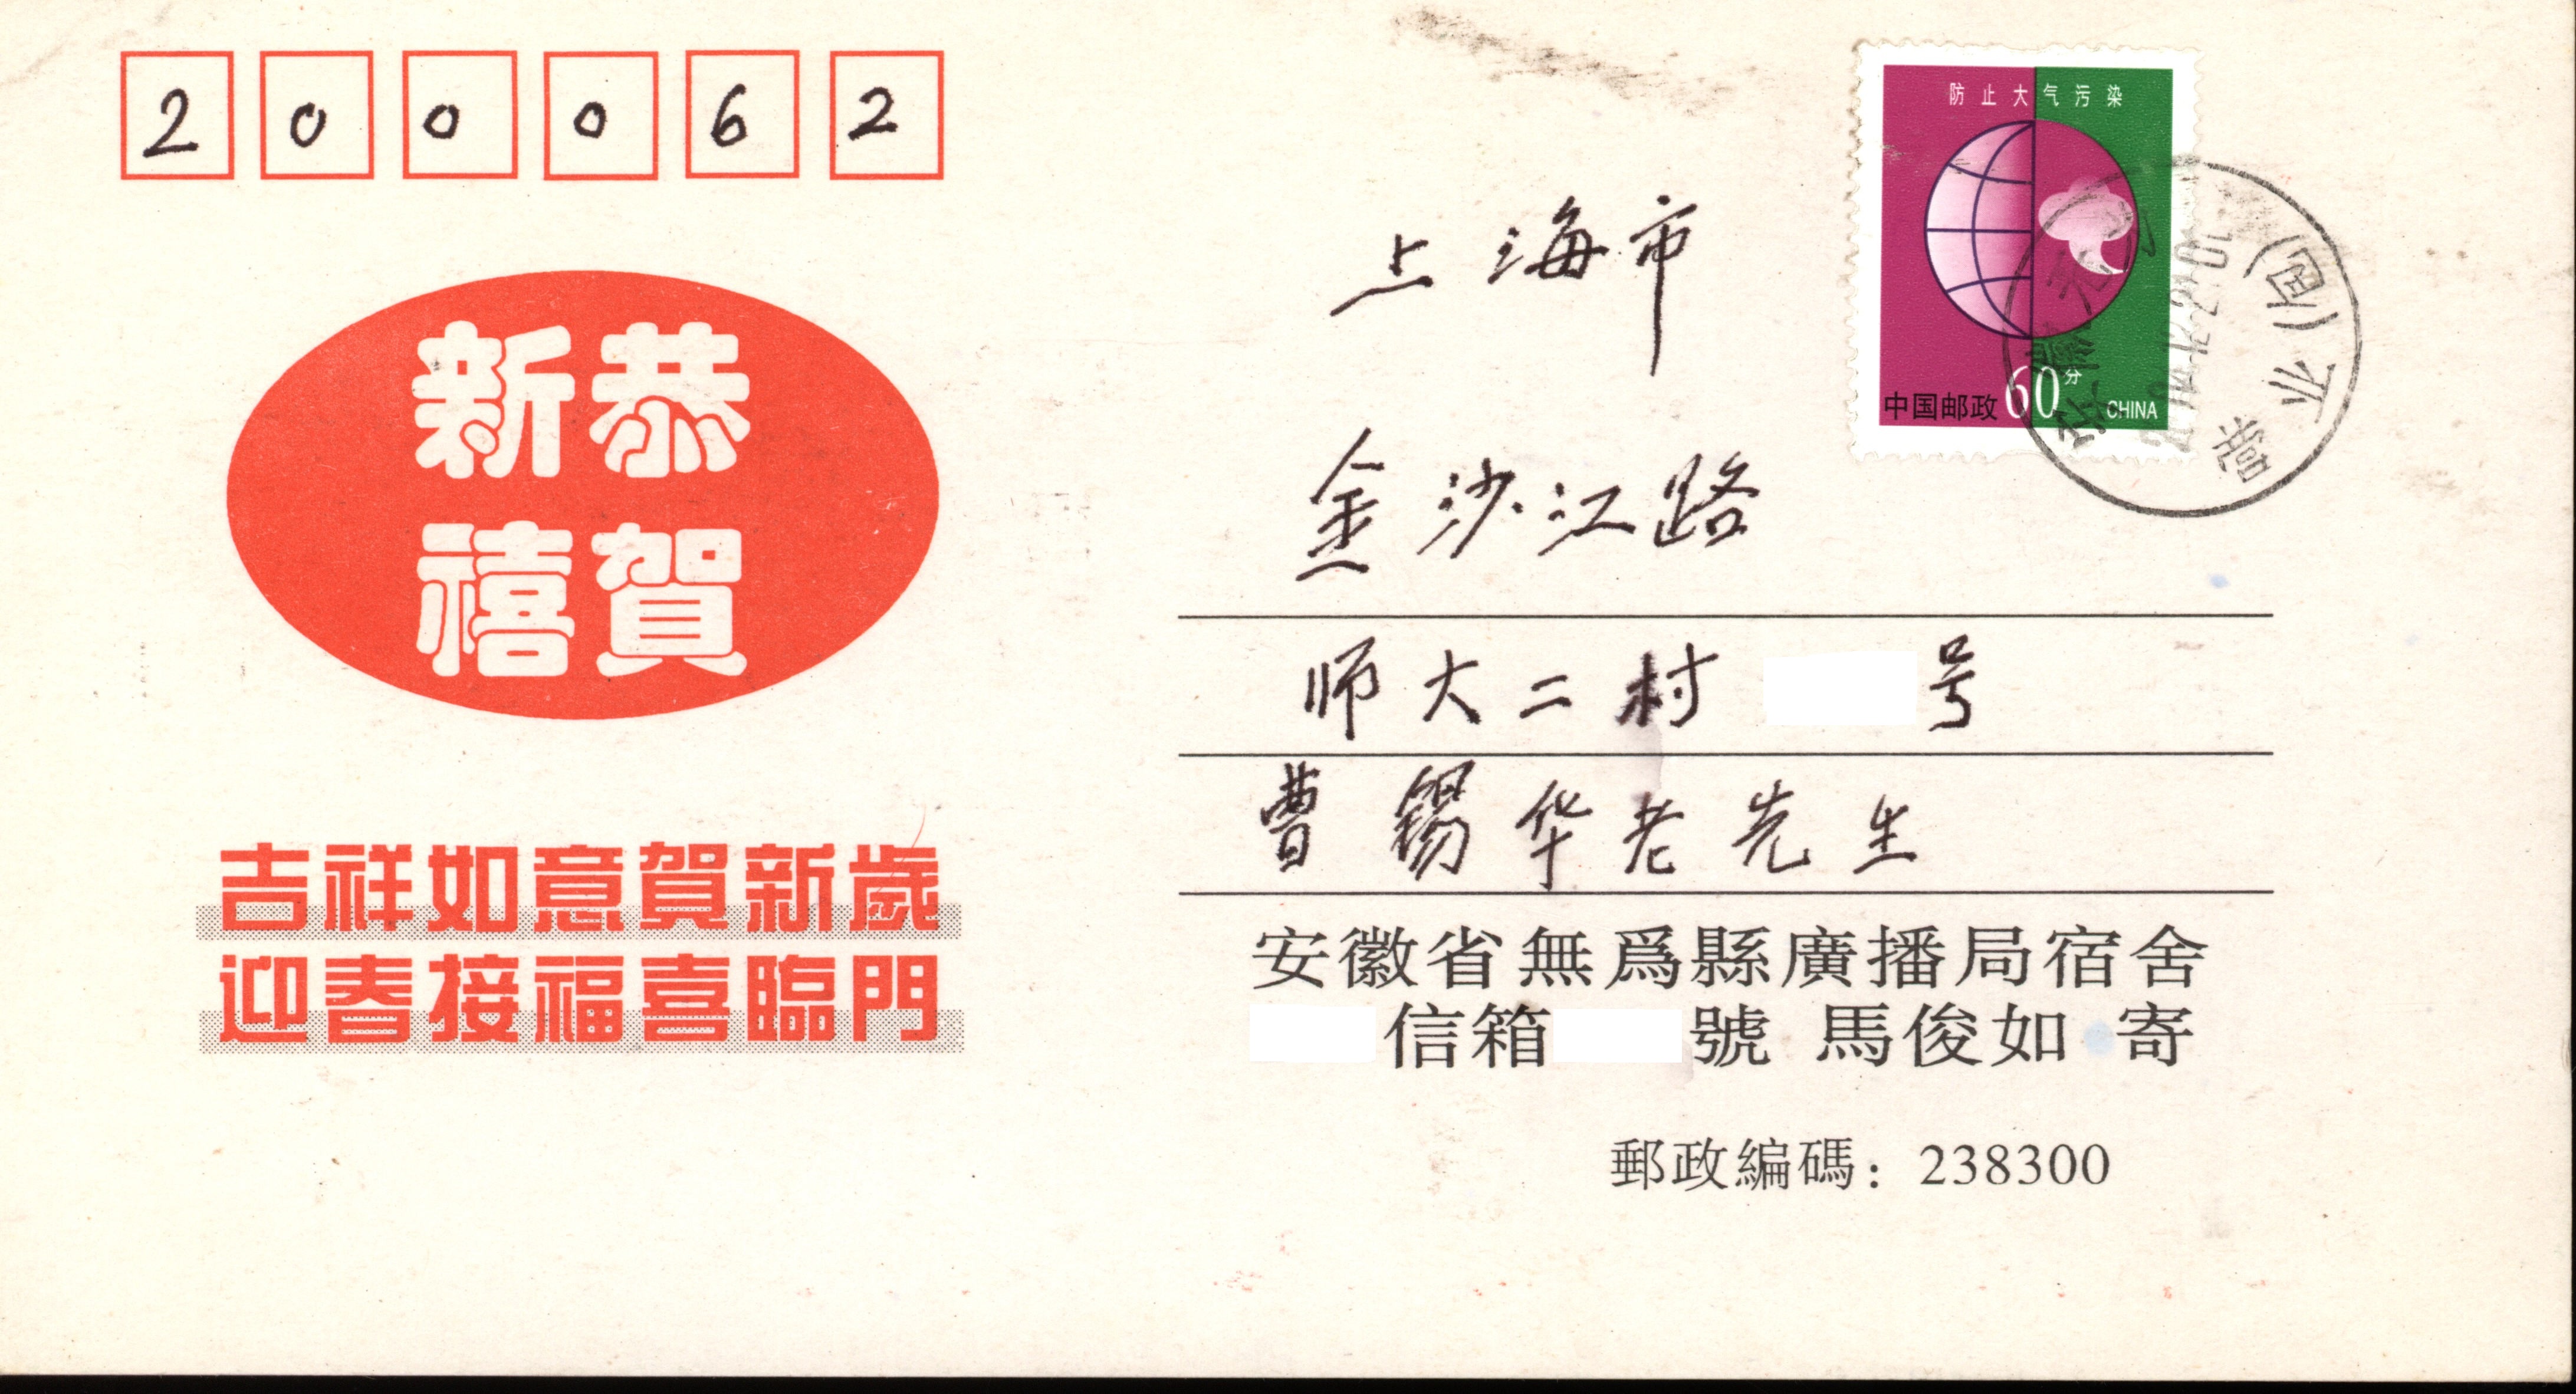 200062
恭賀
新禧
吉祥如意賀新歲
迎春接福喜臨門
防止大气污染
中国邮政 60分 CHINA
上海市
金沙江路
师大二村 号
曹锡华老先生
安徽省無爲縣廣播局宿舍
信箱 號 馬俊如 寄
郵政編碼：238300